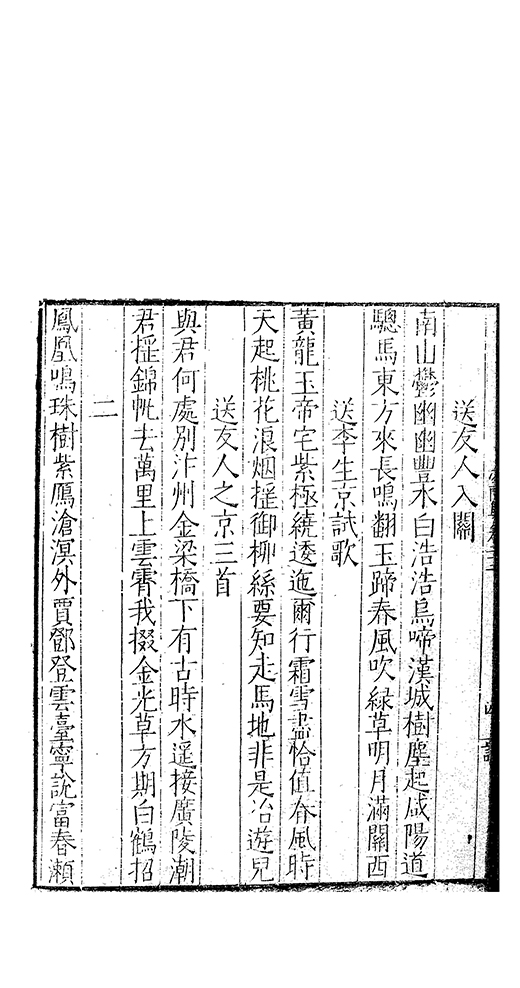 送友人入關
南山鬱幽幽豐水白浩浩烏啼漢城樹塵起咸陽道
驄馬東方來長鳴翻玉蹄春風吹緑草明月滿關西
送李生京試歌
黃龍玉帝宅紫極繞逶迤爾行霜雪盡恰值春風時
天起桃花浪烟搖御柳絲要知走馬地非是冶遊兒
送友人之京三首
與君何處別汴州金梁橋下有古時水遥接廣陵潮
君搖錦帆去萬里上雲霄我掇金光草方期白鶴招
二
鳳凰鳴珠樹紫鴈滄溟外賈鄧登雲臺寧說富春瀨